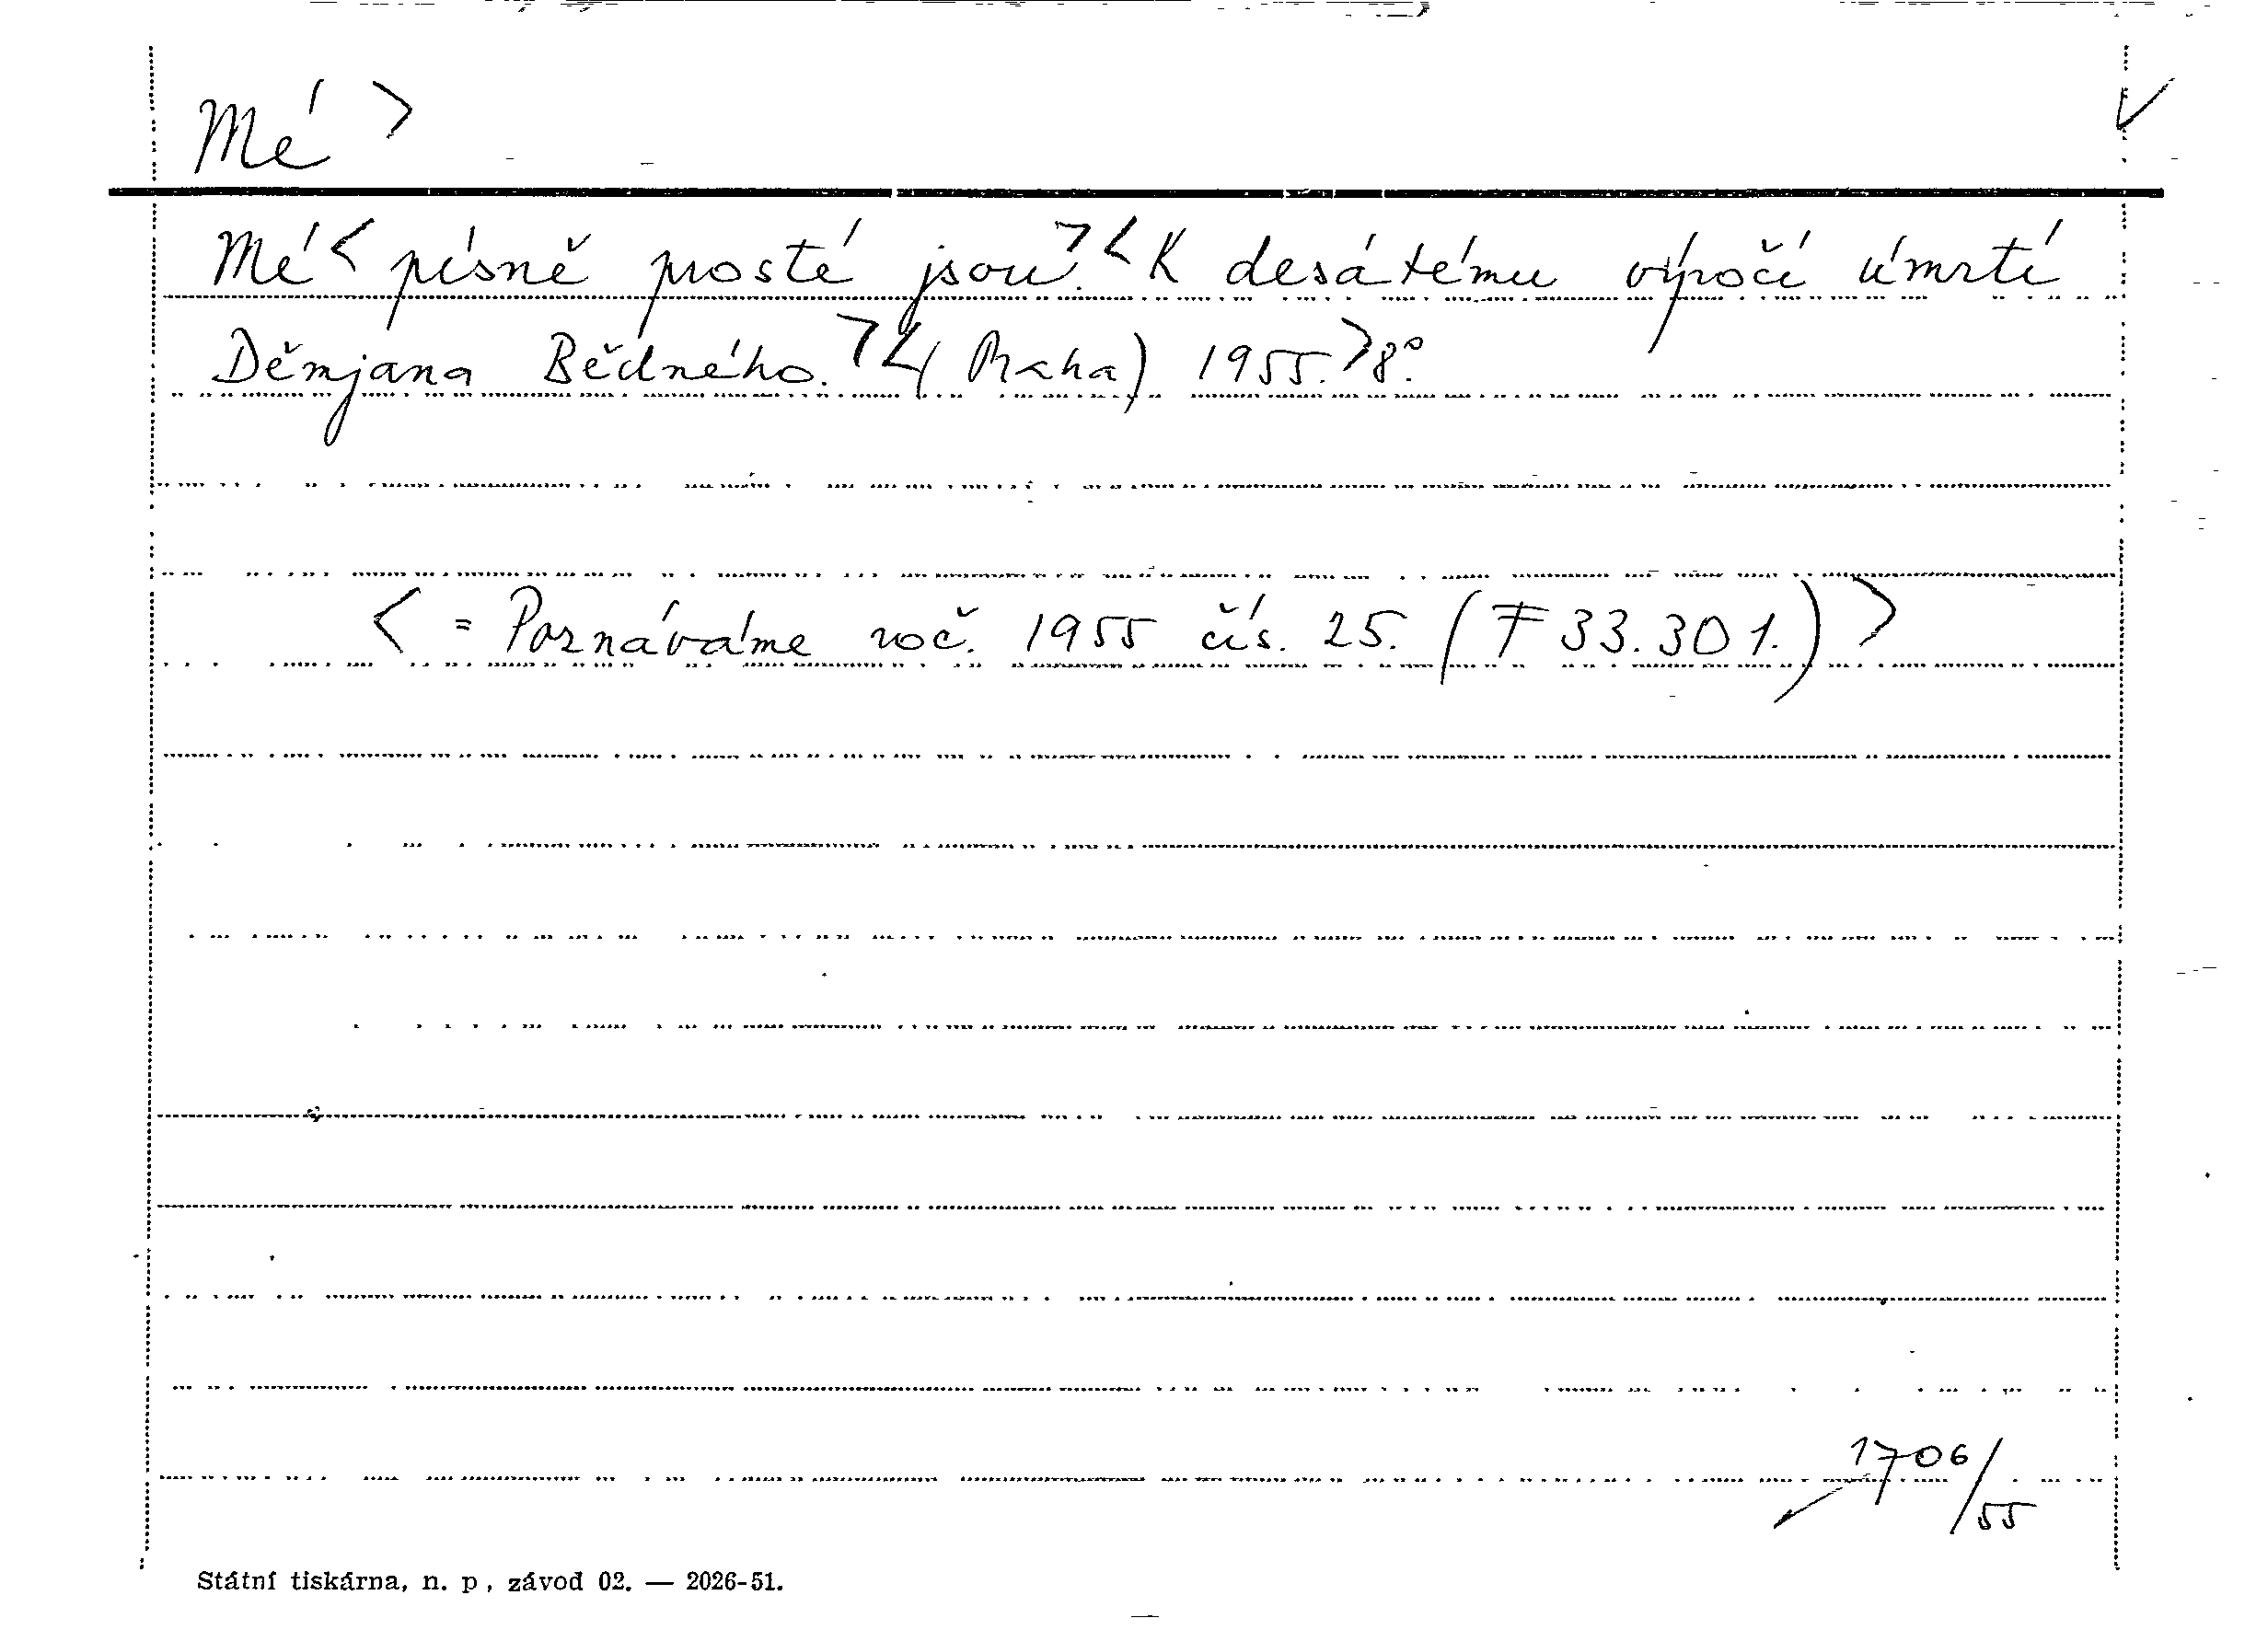 Mé >
Mé < písně prosté jsou. > < K desátému výročí úmrtí
Děmjana Bědného. > < (Praha) 1955. > 8°.
< = Poznáváme roč. 1955 čís. 25. (F 33.301.) >
1706/55
Státní tiskárna, n. p., závod 02. — 2026-51.